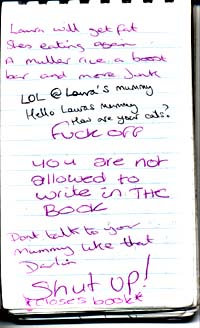 Laura will get fat
Shes eating again
A muller rice a boost
bar and more Junk
LOL @ Laura's mummy
Hello Lauras mummy
How are your cats?
Fuck off
YOU are not
allowed to
write in THE
BOOK
Dont talk to your
Mummy like that
Darlin
Shut up!
*closes book*